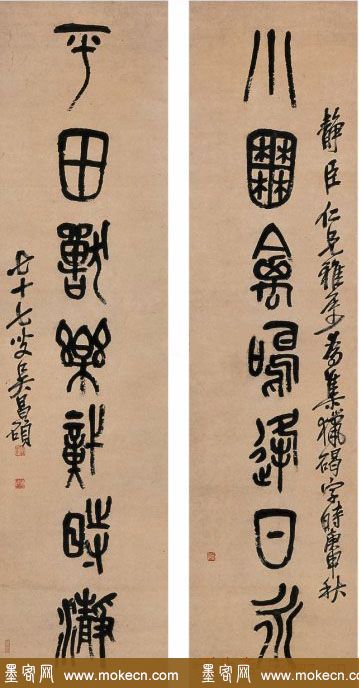 靜臣仁兄雅屬為集獵碣字時庚申秋
小囿禽鳴逢日永
平田獸樂時
七十七叟吳昌碩
墨客网 www.mokecn.com 墨客网 www.mokecn.com